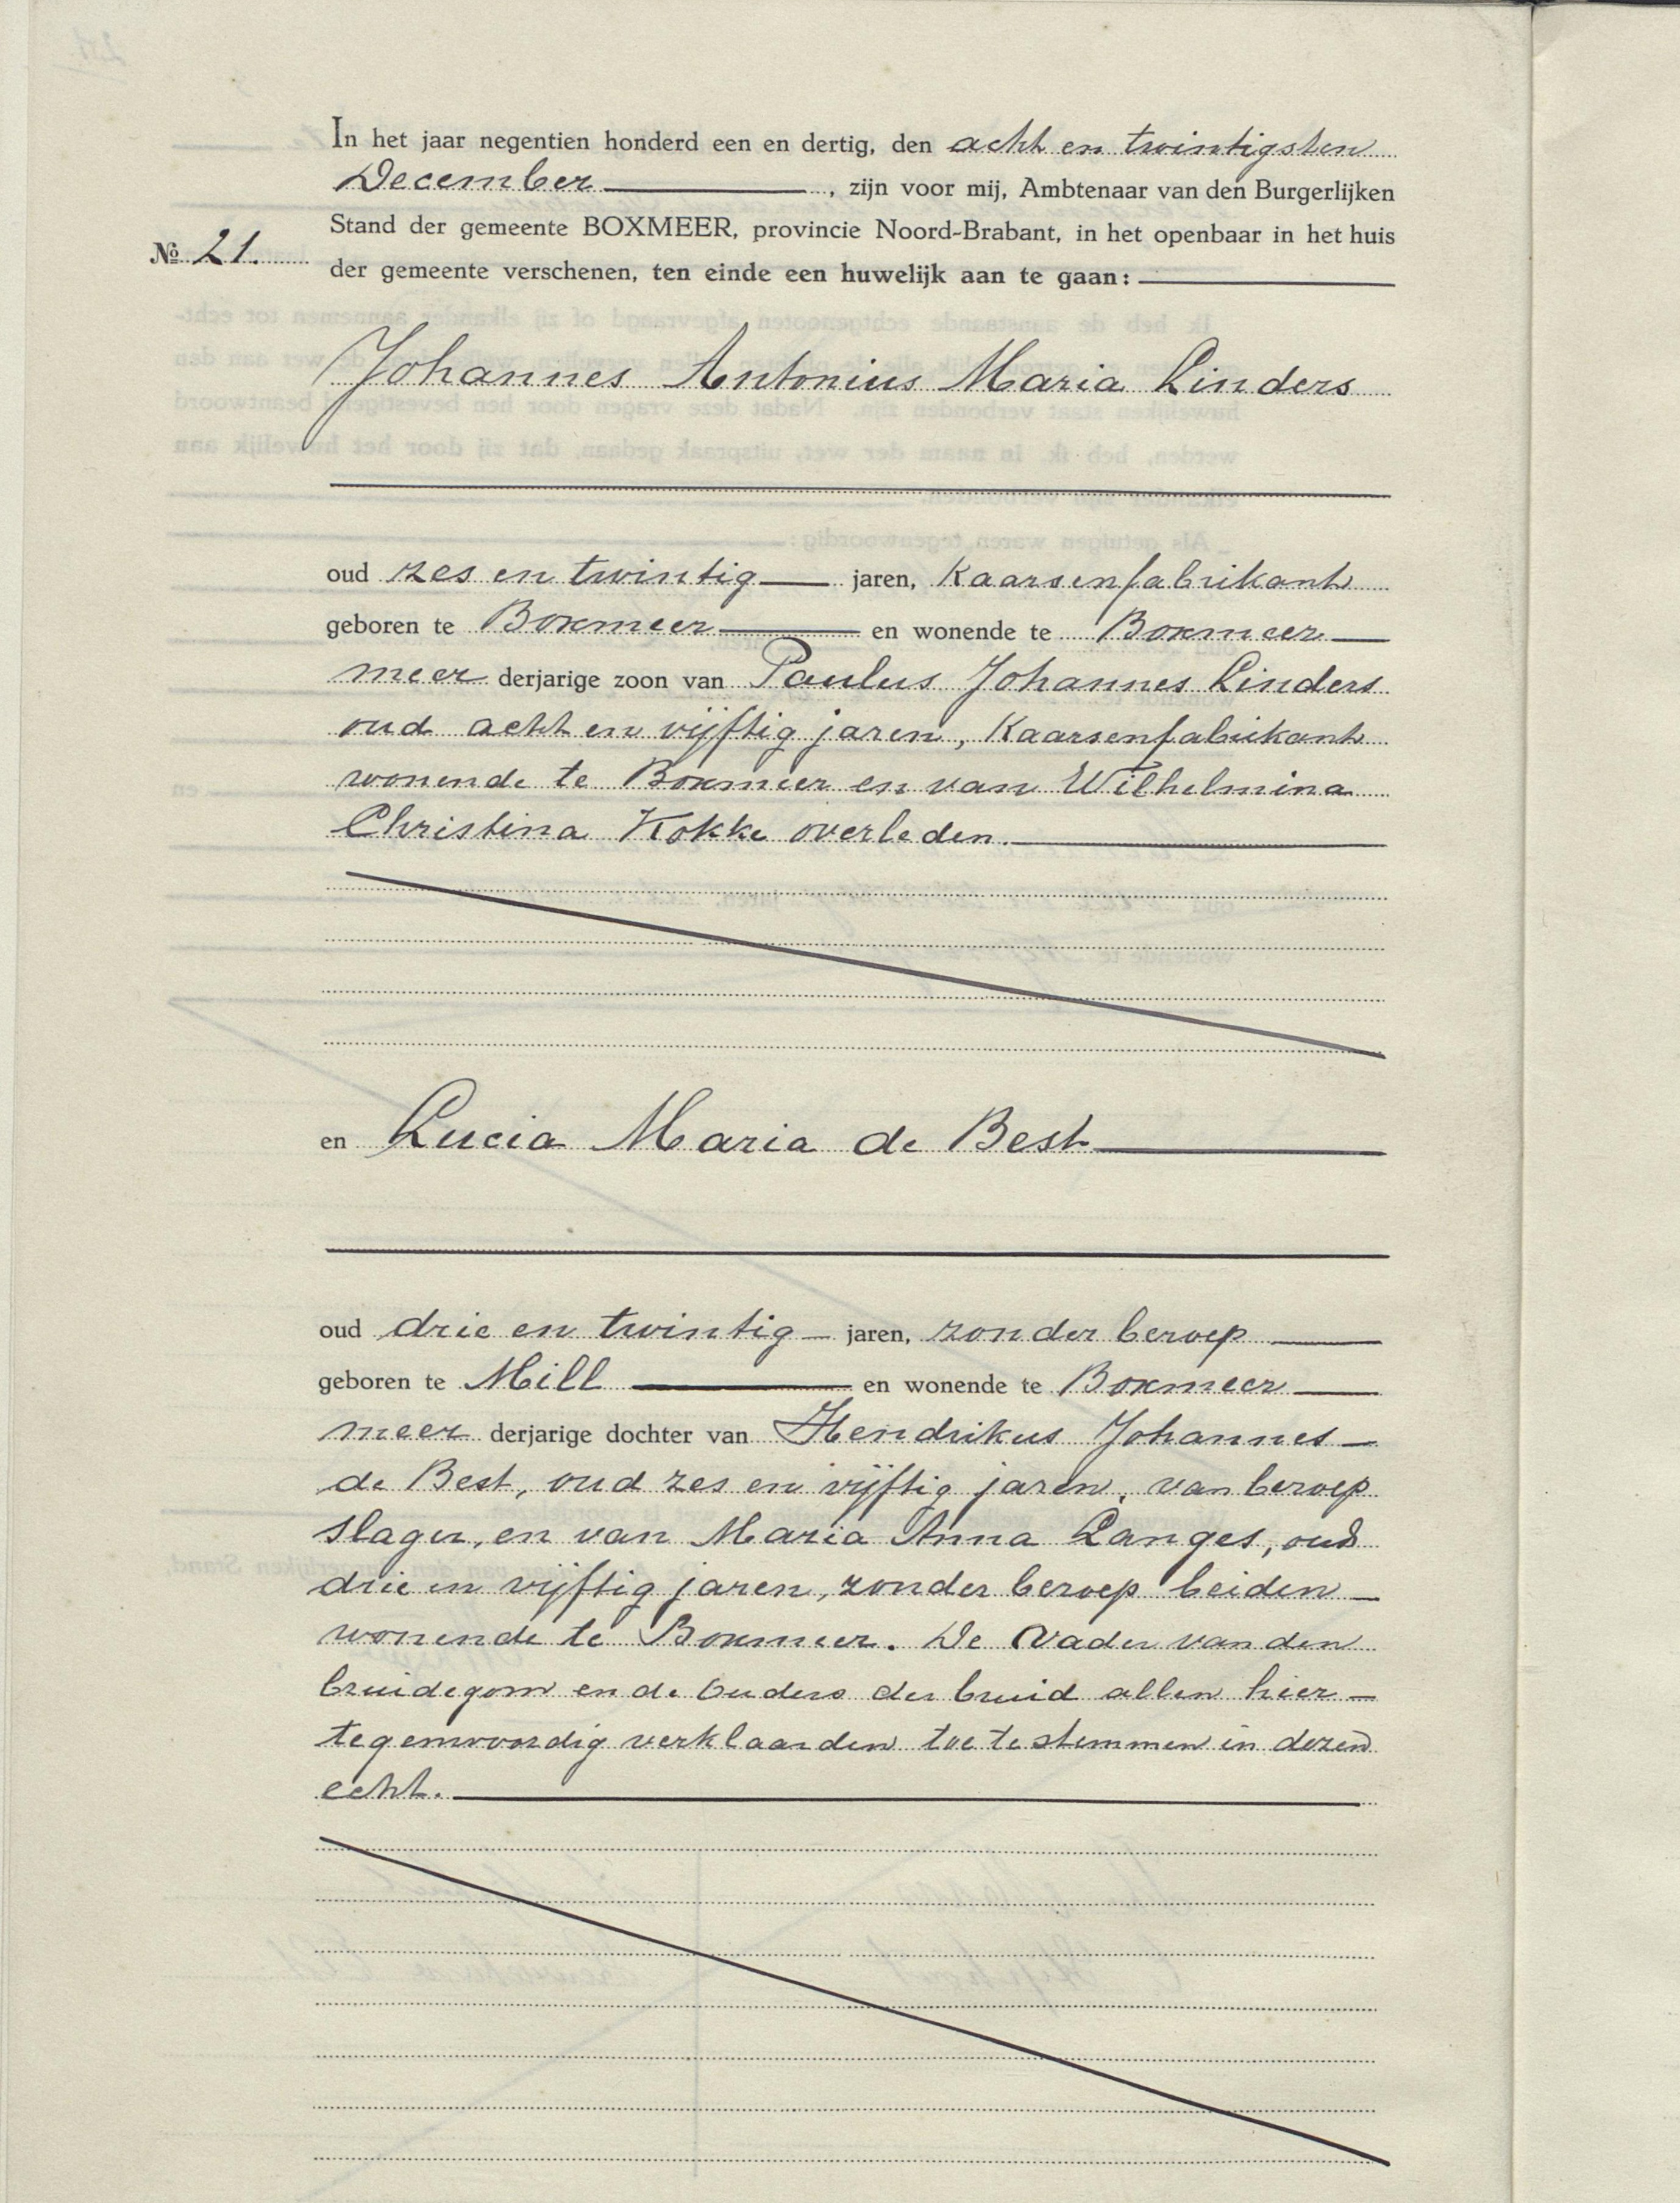 In het jaar negentien honderd een en dertig, den acht en twintigsten
December, zijn voor mij, Ambtenaar van den Burgerlijken
Stand der gemeente BOXMEER, provincie Noord-Brabant, in het openbaar in het huis
№ 21.
der gemeente verschenen, ten einde een huwelijk aan te gaan:
Johannes Antonius Maria Linders
oud zes en twintig jaren, Kaarsenfabrikant
geboren te Boxmeer en wonende te Boxmeer
meer derjarige zoon van Paulus Johannes Linders
oud acht en vijftig jaren, Kaarsenfabrikant
wonende te Boxmeer en van Wilhelmina
Christina Kokke overleden.
en Lucia Maria de Best
oud drie en twintig jaren, zonder beroep
geboren te Mill en wonende te Boxmeer
meer derjarige dochter van Hendrikus Johannes
de Best, oud zes en vijftig jaren, van beroep
slager, en van Maria Anna Langes, oud
drie en vijftig jaren, zonder beroep beiden
wonende te Boxmeer. De Vader van den
bruidegom en de Ouders der bruid allen hier
tegenwoordig verklaarden toe te stemmen in dezen
echt.